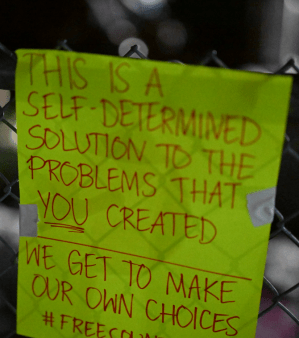 THIS IS A
SELF-DETERMINED
SOLUTION TO THE
PROBLEMS THAT
YOU CREATED
WE GET TO MAKE
OUR OWN CHOICES